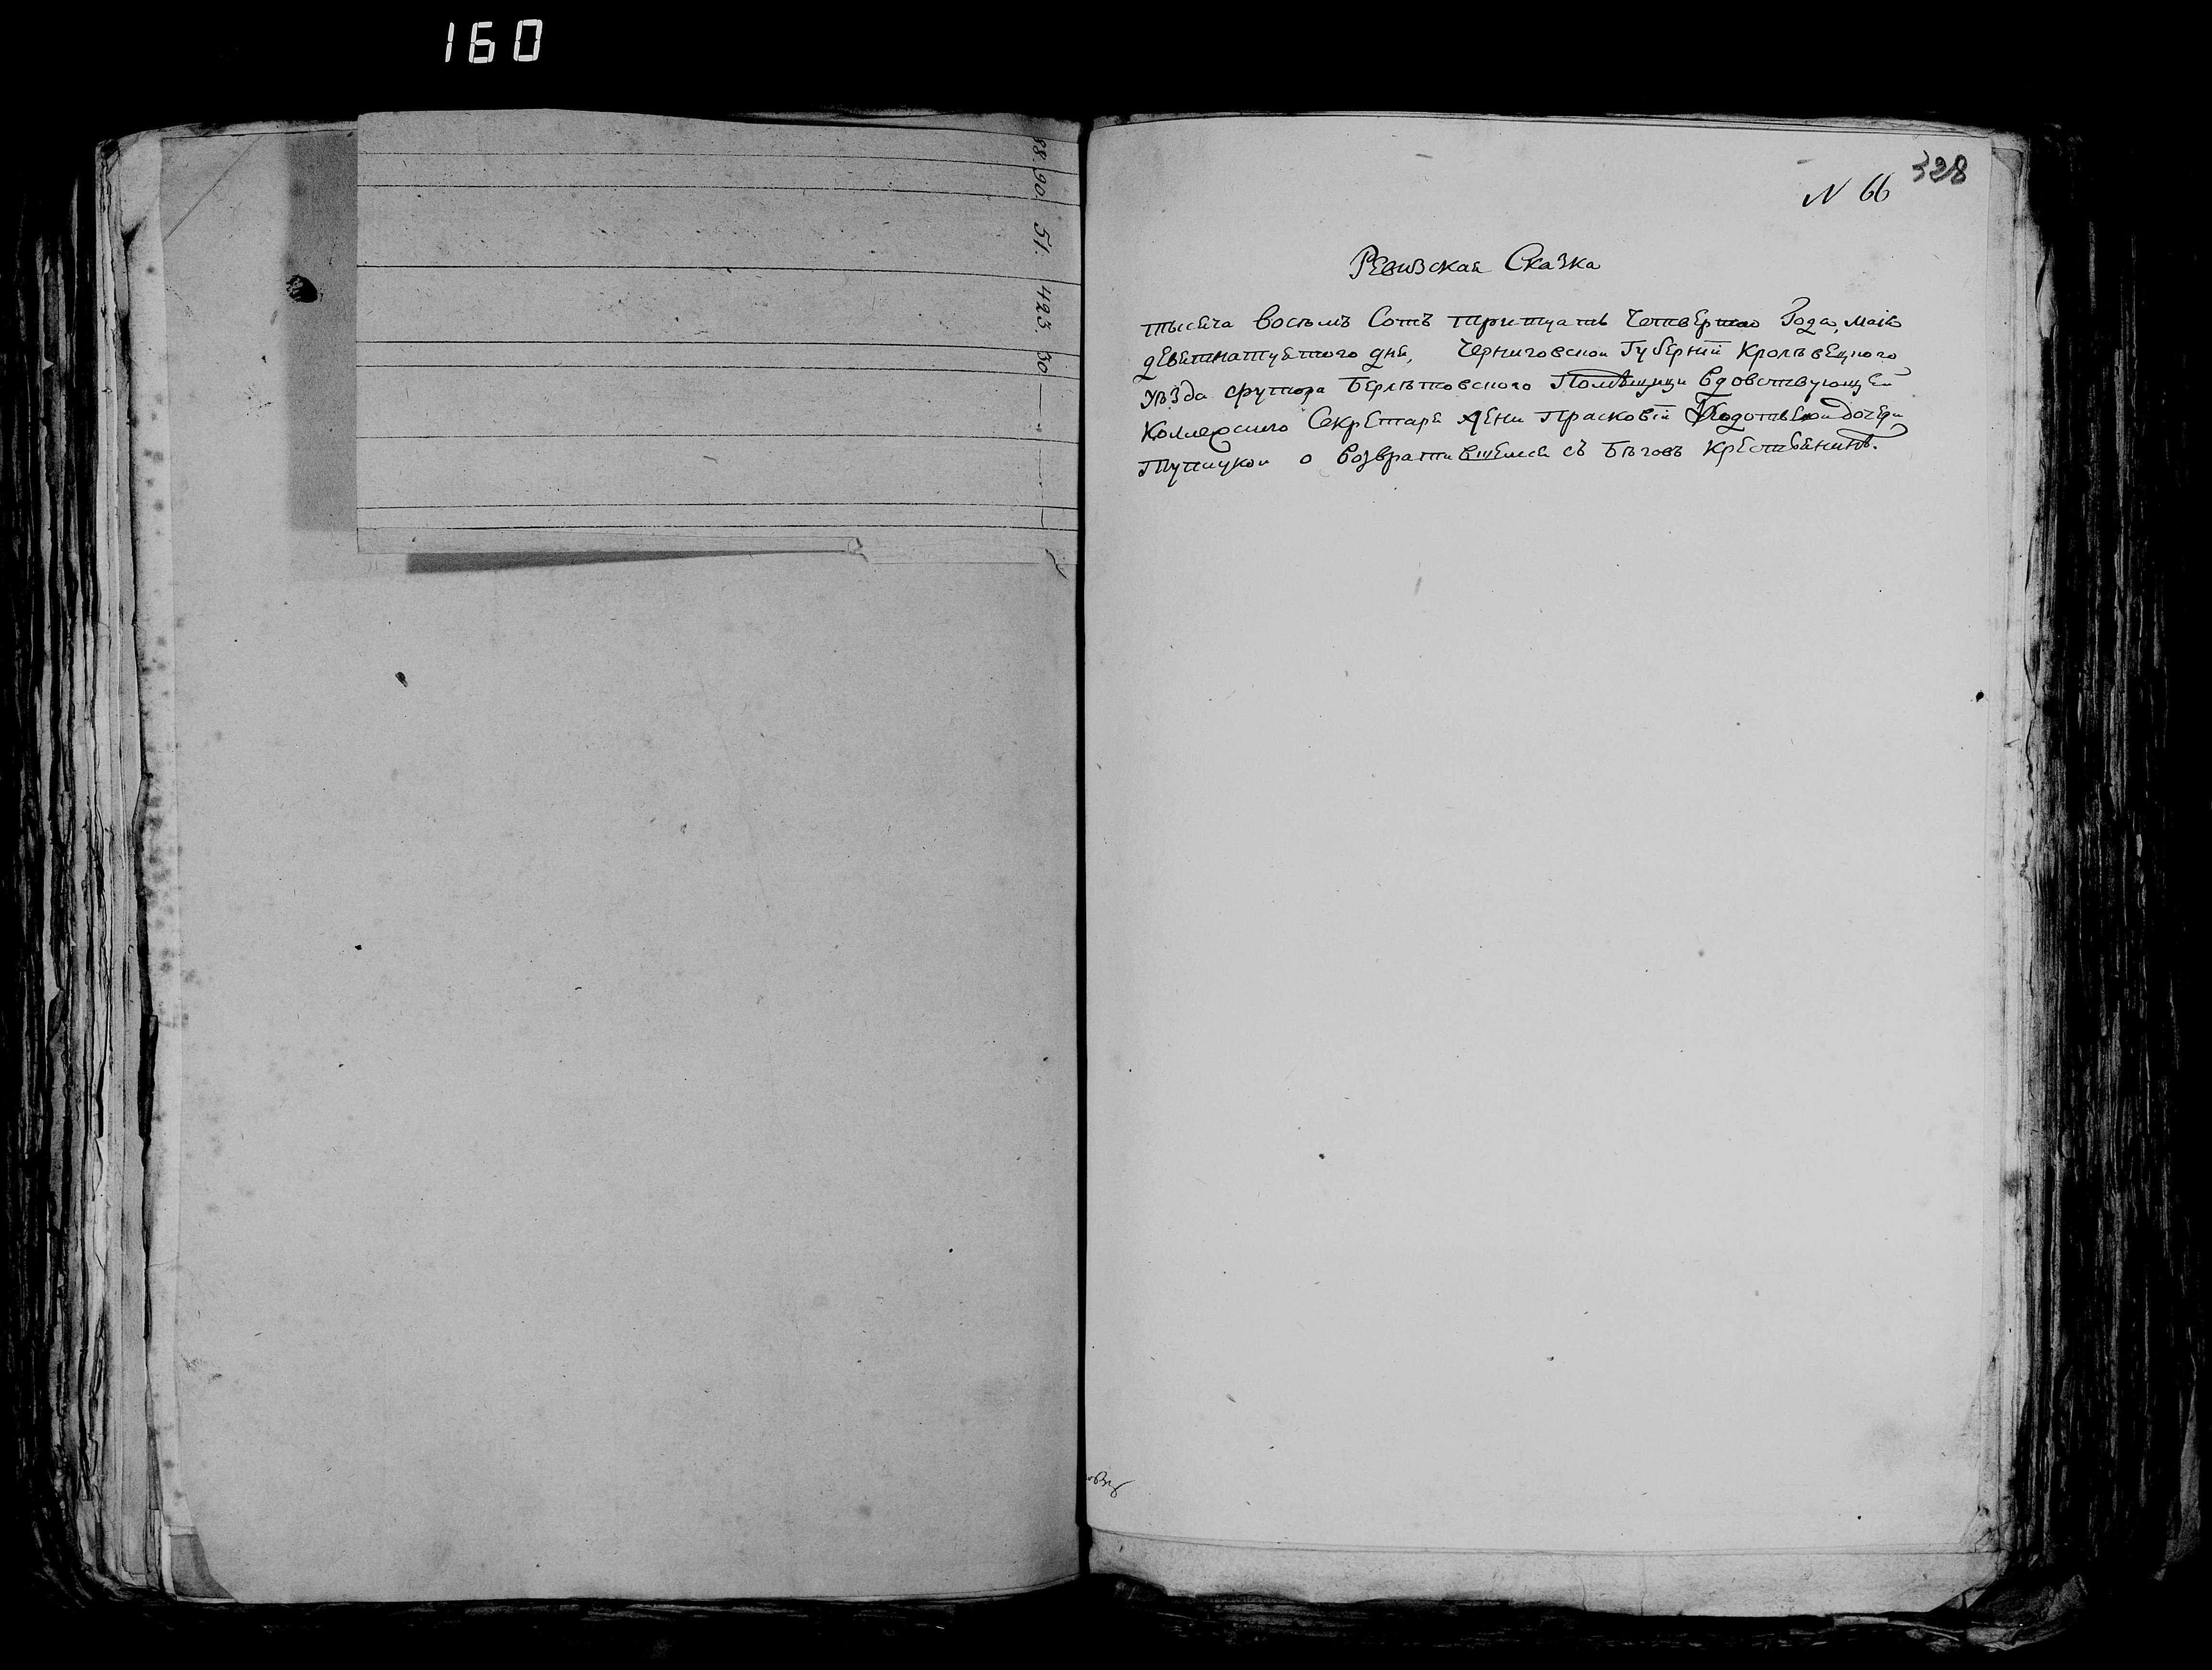 160
88. 90. 51. 423. 30
328
N 66
Ревизская Сказка
тысяча восемъ Сотъ тритцать Четвертаго Года, маія
девятнатцятого дня, Черниговской Губерніи Кролѣвецкого
уѣзда футора Помѣщици вдовствующей
Коллежского Секретаря жены Прасковіи дочери
о возвратившемся съ Бѣговъ Крестьянинѣ.